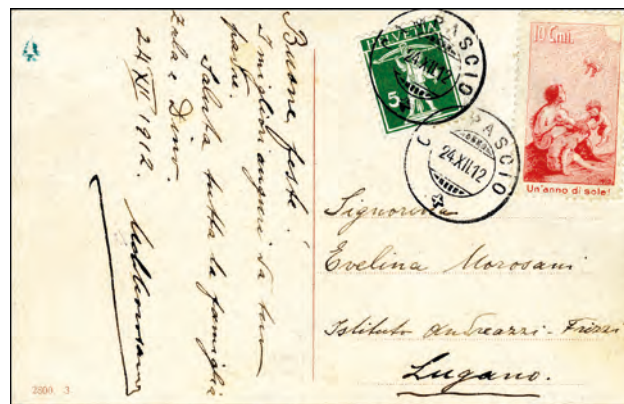 4
Buone feste!
I migliori auguri da tuo
padre.
Saluta tutta la famiglia
e Dino.
24 XII 1912.
2800 3
HELVETIA
5
CAMPASCIO
24.XII.12
CAMPASCIO
24.XII.12
10 Cmi.
Un'anno di sole!
Signorina
Evelina Morosani
Istituto Andreazzi-Frizzi
Lugano.